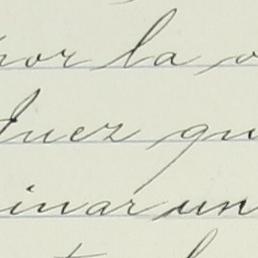 por la
Juez qu
inar un